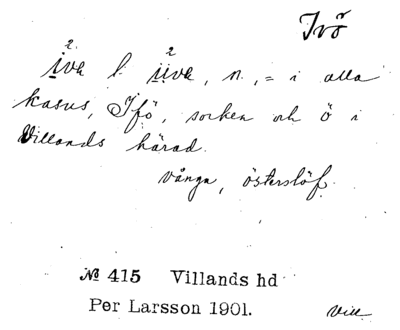 Ivö
ive l. üve, n., = i alla
kasus, Ifö, socken och ö i
Villands härad.
Vånga, Österslöf.
№ 415 Villands hd
Per Larsson 1901.
Vill